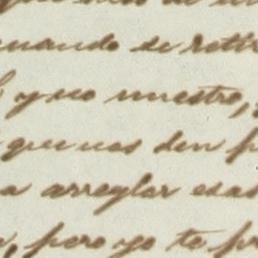 cuando se retir
y no nuestro,
que nos den p
a arreglar esas
, pero yo te pr